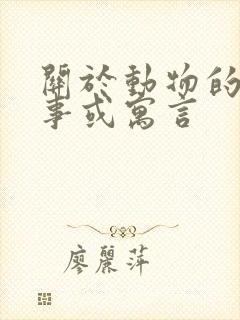 關於動物的
事或寓言
廖麗萍